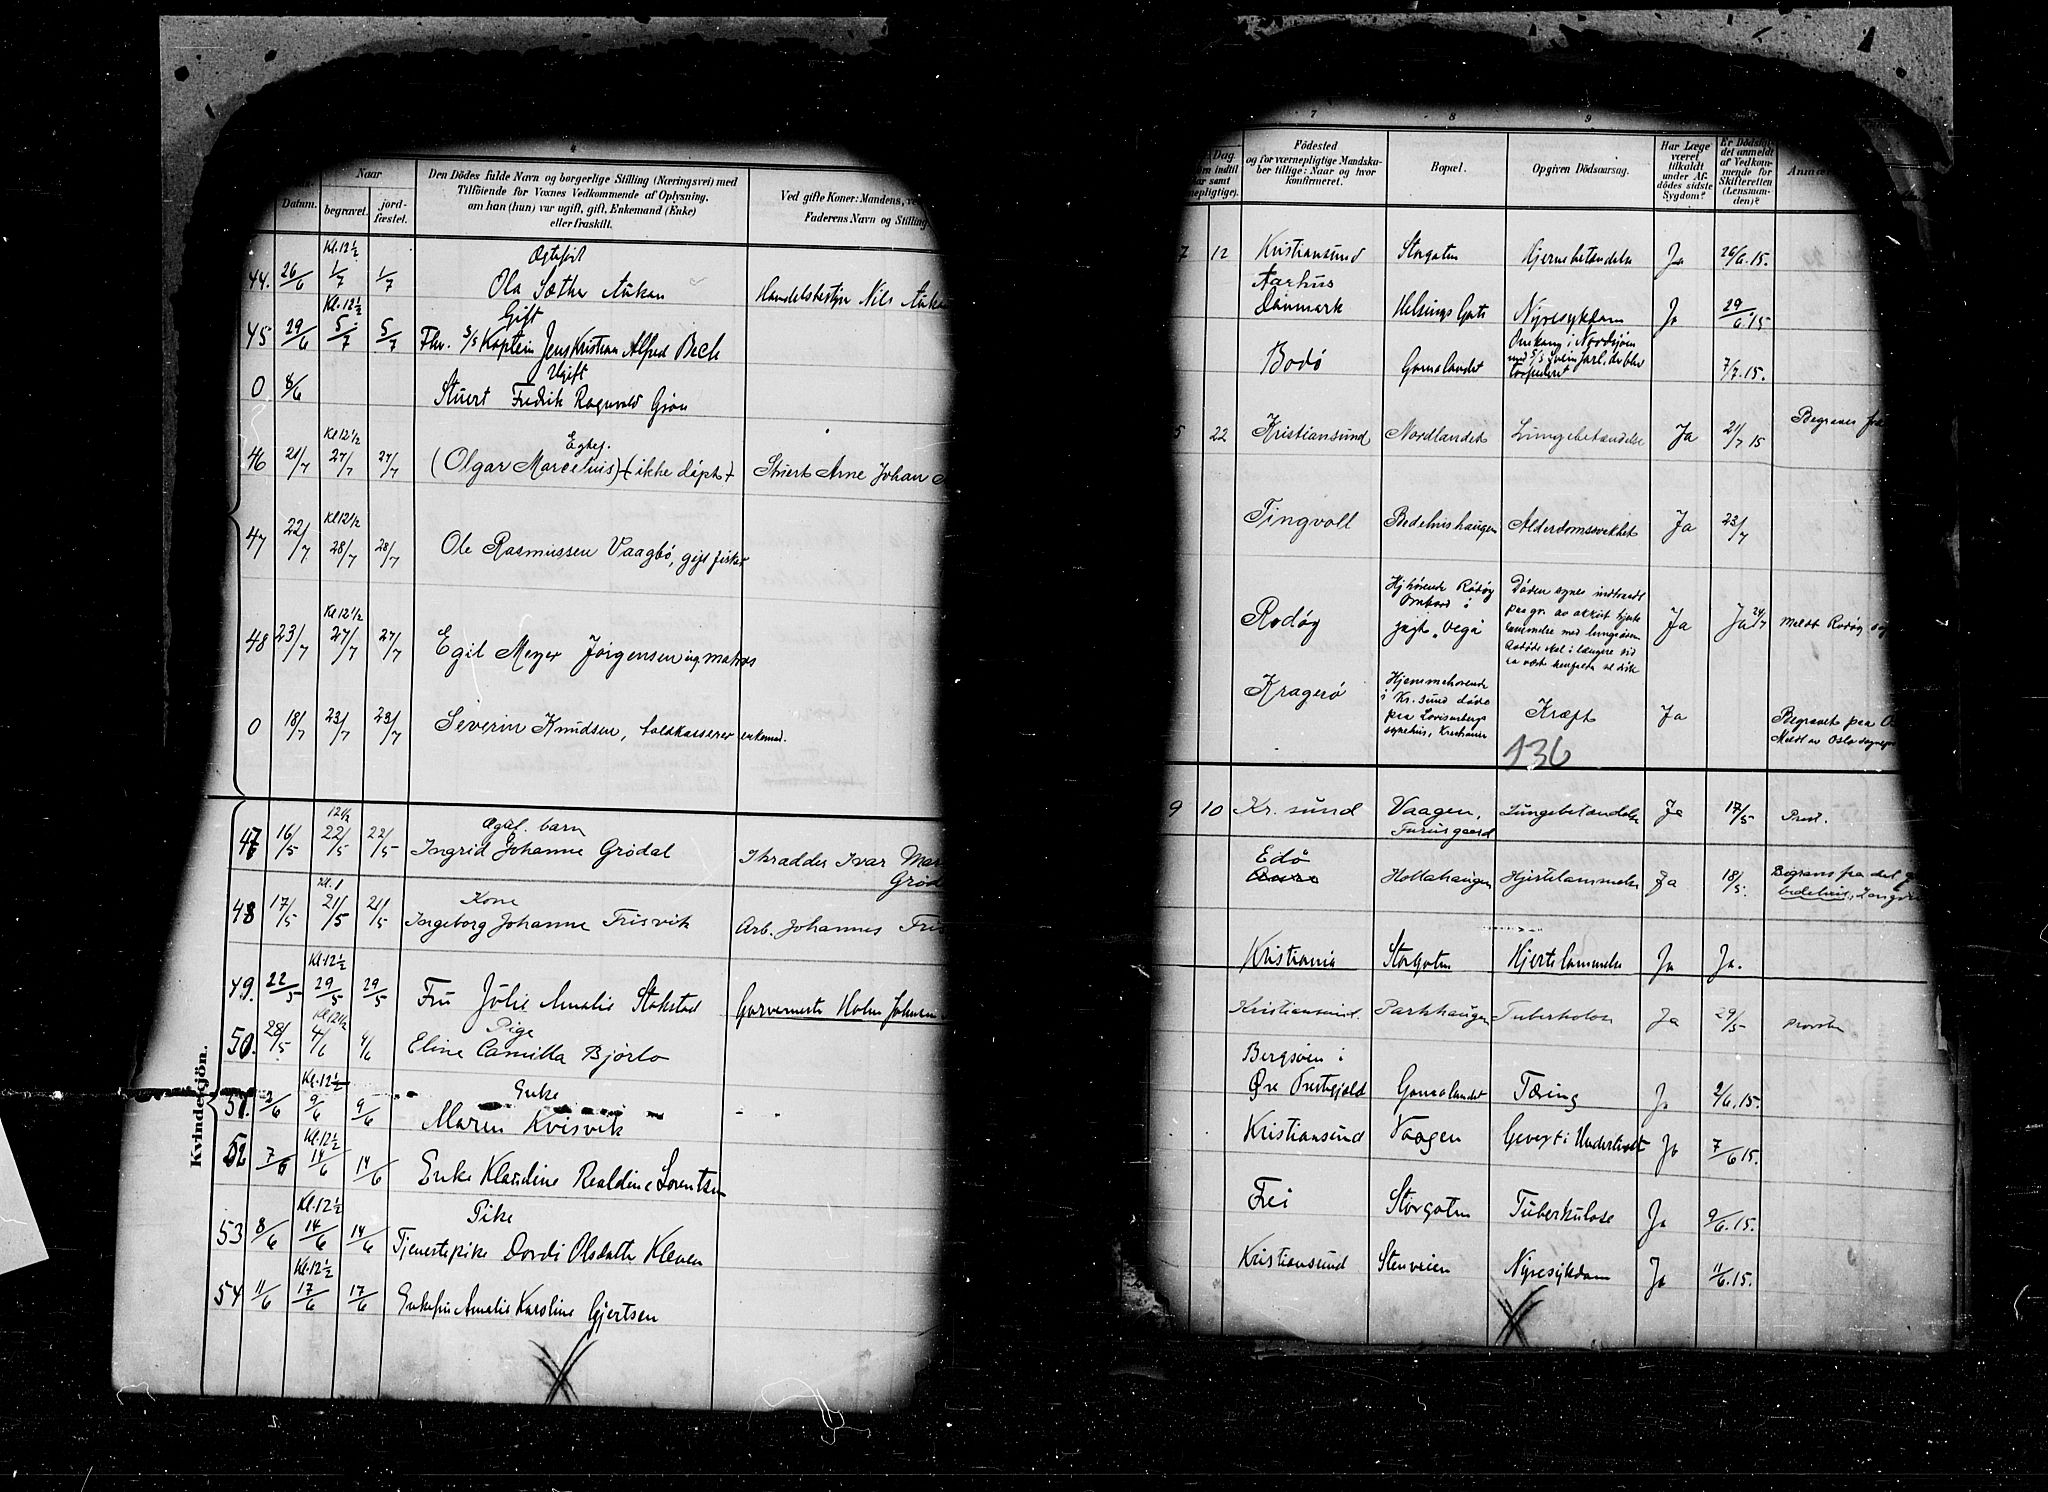 4
Datum.
Naar
begravet.
jord-
fæstet.
Den Dödes fulde Navn og borgerlige Stilling (Næringsvei) med
Tilföiende for Voxnes Vedkommende af Oplysning,
om han (hun) var ugift, gift, Enkemand (Enke)
eller fraskilt.
Ved gifte Koner: Mandens, ve
Faderens Navn og Stilling
Kl. 12 ½
Ogtefød
44. 26/6 1/7 1/7 Ola Sæther Aukan Handelsbestyr Nils Auka
Kl. 12 ½
Gift
45 29/6 5/7 5/7 Fhv. S/S Kaptein Jens Kristian Alfred Bech
Ugift
0 8/6 Stuert Fredrik Ragnvald Grön
Kl 12 ½
Egtef.
46 21/7 27/7 27/7 (Olgar Marcelius) (ikke döpt) Stuert Arne Johan
Kl 12 ½
47 22/7 28/7 28/7 Ole Rasmussen Vaagbø, gift fisker
Kl 12 ½
48 23/7 27/7 27/7 Egil Meyer Jörgensen ug matros
0 18/7 23/7 23/7 Severin Knudsen, toldkasserer enkemd.
12 ½
Ogtef. barn
47 16/5 22/5 22/5 Ingrid Johanne Grödal Skrædder Ivar Mar
Gröd
Kl. 1
Kone
48 17/5 21/5 21/5 Ingeborg Johanne Frisvik Arb. Johannes Fris
Kl. 12 ½
49. 22/5 29/5 29/5 Fru Julie Amalie Stokstad Garvermester Holm Johnsen
Kl 12 ½
Pige
50. 28/5 4/6 4/6 Eline Camilla Bjørlo
Kl. 12 ½
Enke
51. 2/6 9/6 9/6 Maren Kvisvik
Kl. 12 ½
52 7/6 14/6 14/6 Enke Klaudine Realdine Lorentsen
Kl. 12 ½
Pike
53 8/6 14/6 14/6 Tjenestepike Dordi Olsdatter Kleven
Kl. 12 ½
54 11/6 17/6 17/6 Enkefru Amalie Karoline Gjertsen
Kvindekjön.
7
8
9
Dag
Födested
og for værnepligtige Mandska-
ber tillige: Naar og hvor
konfirmeret.
Bopæl.
Opgiven Dödsaarsag.
Har Læge
været
tilkaldt
under Af-
dödes sidste
Sygdom?
Er Dödsfal-
det anmeldt
af Vedkom-
mende for
Skifteretten
(Lensman-
den)?
Anmæ
7 12 Kristiansund Storgaten Hjernebetændelse Ja 26/6.15.
Aarhus
Danmark Helsings Gate Nyresykdom Ja 29/6.15
Bodö Gomalandet Omkom i Nordsjøen
med S/S Svein Jarl, der blev
torpederet 7/7.15.
5 22 Kristiansund Nordlandet Lungebetændelse Ja 21/7 15 Begraves fra
Tingvoll Bedehushaugen Alderdomssvakhet Ja 23/7
Rödöy Hjhörende Rödöy
Ombord i
jagt „Vega" Döden synes indtraadt
paa gr. av akkut hjerte
lammelse med lungeödem
Ja Ja 24/7 Meldt Rödöy
Kragerö Hjemmehörende
i Kr. sund döde
paa Lovisenbergs
sykehus, Kristiania Kræft Ja Begravet paa O
Meldt av Oslo sognepr
136
9 10 Kr. sund Vaagen,
Furugaard Lungebetændelse Ja 17/5 Prest.
Edö
Aure Hollahaugen Hjertelammelse Ja 18/5. Begraves fra det g
bedehus, Langv
Kristiania Storgaten Hjertelammelse Ja Ja.
Kristiansund. Parkhaugen Tuberkulose Ja 29/5 provsten
Bergsöen i
Øre Prestegjeld Gomalandet Tæring Ja 2/6.15.
Kristiansund Vaagen Gevext i Underlivet Ja 7/6 15.
Frei Storgaten Tuberkulose Ja 9/6.15.
Kristiansund Stenveien Nyresykdom Ja 11/6.15.